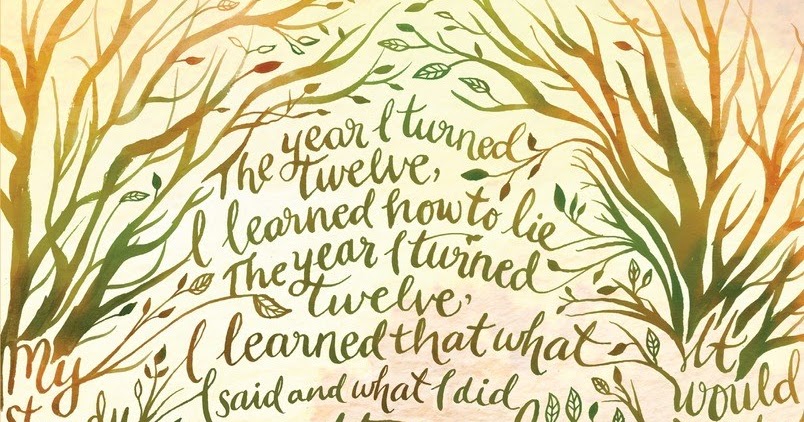 The year I turned
twelve,
I learned how to lie
The year I turned
twelve,
I learned that what
I said and what I did
My
It
would